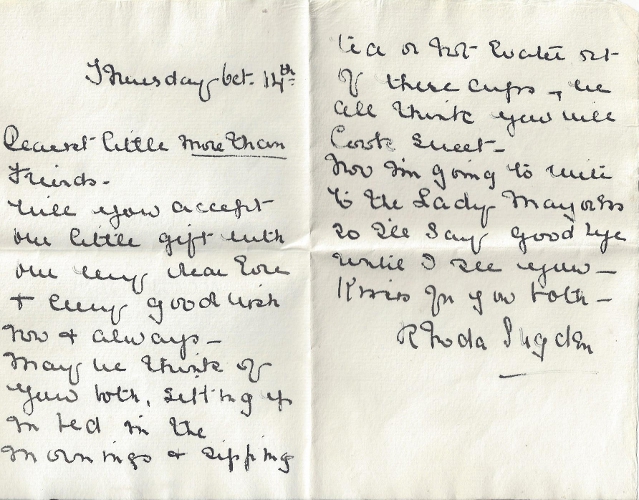 Thursday Oct. 14th
Dearest little more than
Friends -
Will you accept
our little gift with
our very dear love
+ every good wish
now & always -
May we think of
you both, sitting up
in bed in the
mornings & sipping
tea or hot water out
of these cups, we
all think you will
look sweet -
Now I'm going to write
to the Lady Mayoress
so I'll say good bye
until I see you -
Kisses for you both -
Rhoda Sugden